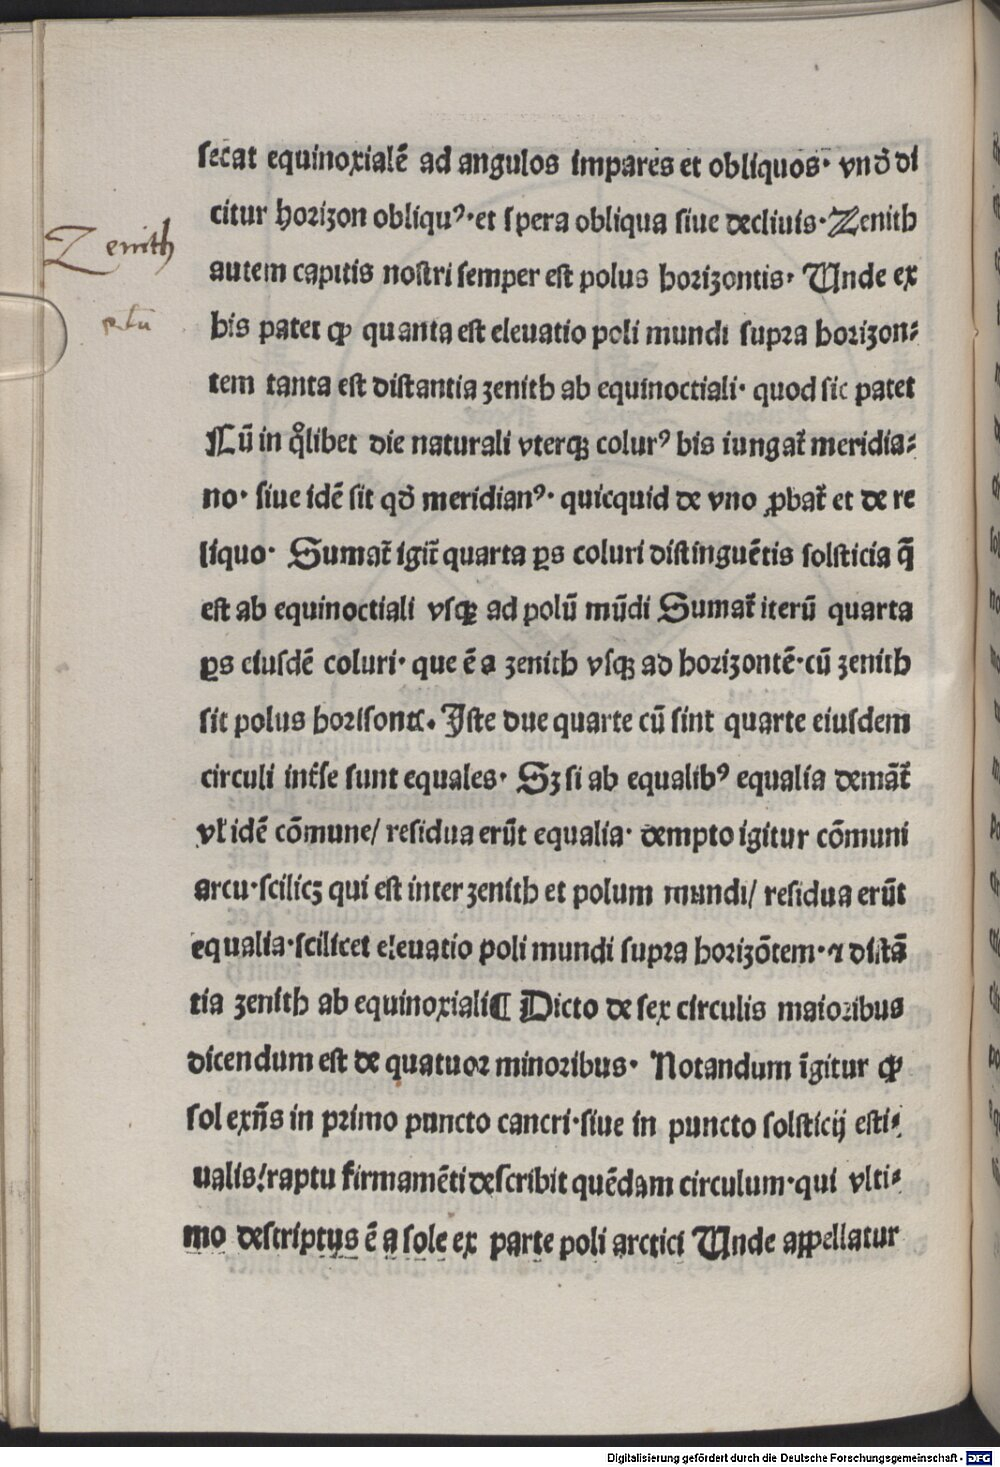 secat equinoxialē ad angulos impares et obliquos· vnď di
citur horizon obliquꝰ·et spera obliqua siue decliuis·Zenith
autem capitis nostri semper est polus horizontis· Unde ex
his patet ꝙ quanta est eleuatio poli mundi supra horizon⸗
tem tanta est distantia zenith ab equinoctiali· quod sic patet
Cū in q̊libet die naturali vterqꝫ colurꝰ bis iungat᷑ meridia⸗
no· siue idē sit qď meridianꝰ· quicquid de vno ꝓbat᷑ et de re
liquo· Sumat᷑ igit᷑ quarta ꝑs coluri distinguētis solsticia q̄
est ab equinoctiali vsqꝫ ad polū mūdi Sumat᷑ iterū quarta
ꝑs eiusdē coluri· que ē a zenith vsqꝫ ad horizontē·cū zenith
sit polus horisontꝭ. Iste due quarte cū sint quarte eiusdem
circuli int᷑se sunt equales· Sꝫ si ab equalibꝰ equalia demāt᷑
vl᷑ idē cōmune/ residua erūt equalia· dempto igitur cōmuni
arcu·scilicꝫ qui est inter zenith et polum mundi/ residua erūt
equalia·scilicet eleuatio poli mundi supra horizōtem·⁊ distā
tia zenith ab equinoxiali¶ Dicto de sex circulis maioribus
dicendum est de quatuor minoribus· Notandum īgitur ꝙ
sol exn̄s in primo puncto cancri·siue in puncto solsticij esti⸗
Zenith
ualis/raptu firmamēti describit quēdam circulum·qui vlti⸗
mo descriptus ē a sole ex parte poli arctici Unde appellatur
Digitalisierung gefördert durch die Deutsche Forschungsgemeinschaft - DFG